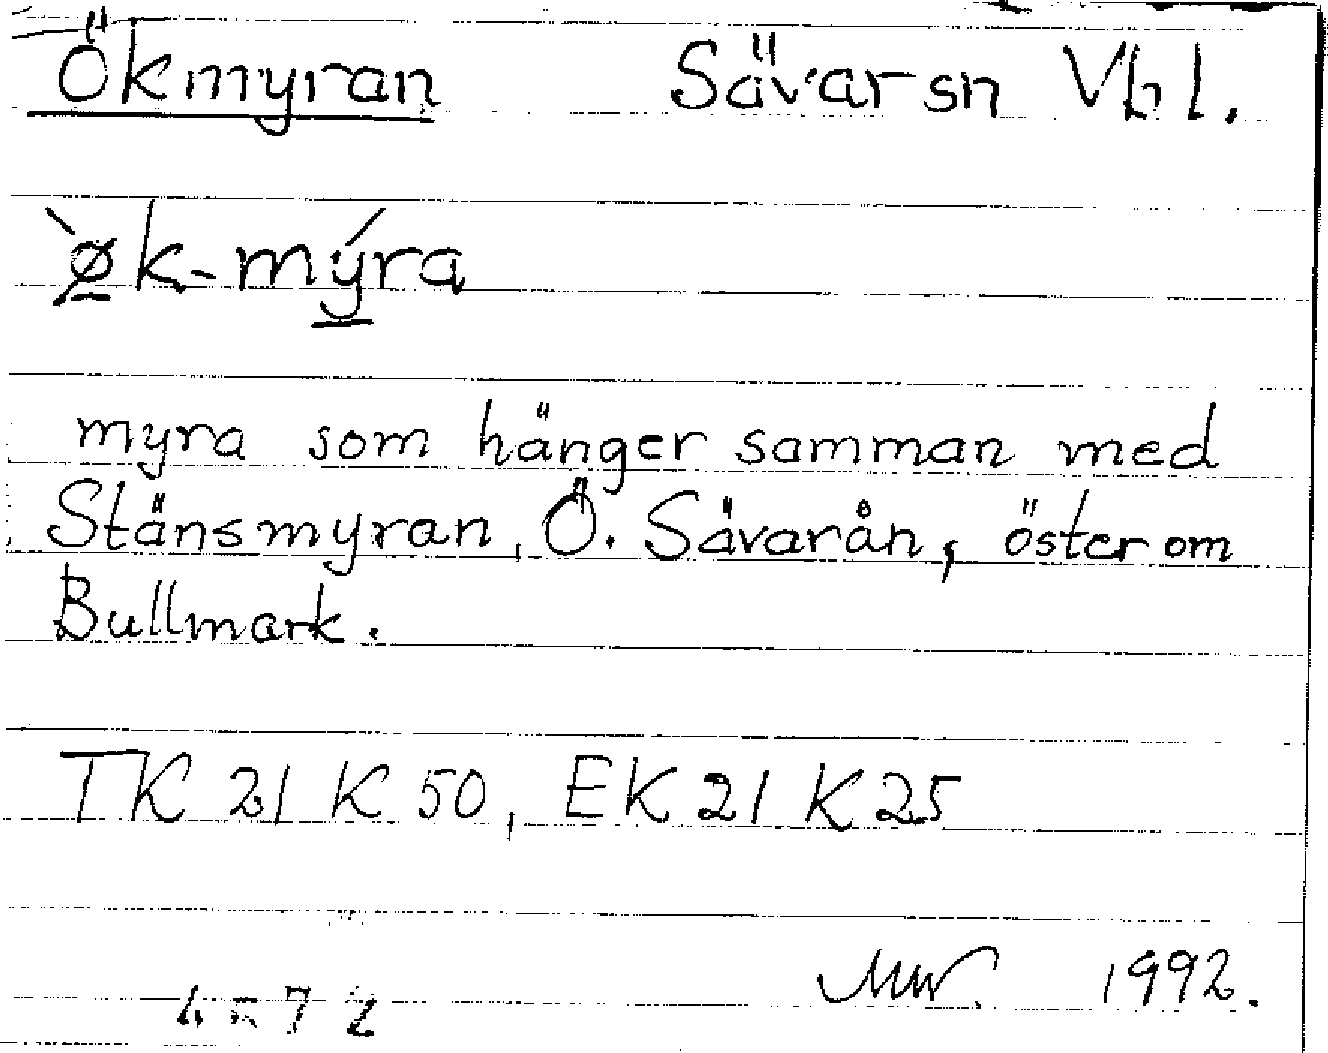 Ökmyran Sävar sn Vbl.
`ø̲k-mý̲ra
myra som hänger samman med
Stänsmyran, Ö. Sävarån, öster om
Bullmark.
TK 21 K 50, EK 21 K 25
1992.